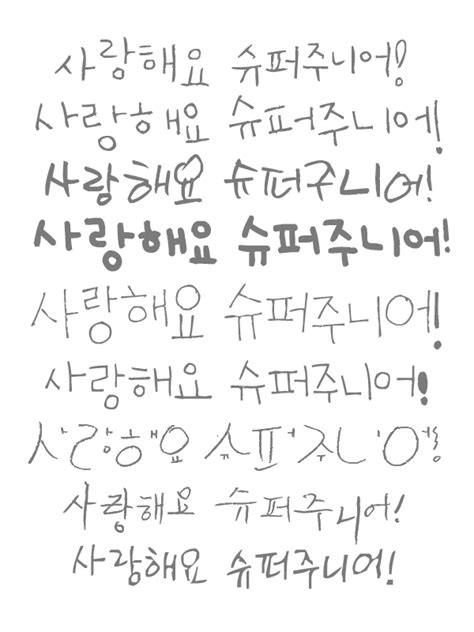 사랑해요 슈퍼주니어!
사랑해요 슈퍼주니어!
사랑해요 슈퍼주니어!
사랑해요 슈퍼주니어!
사랑해요 슈퍼주니어!
사랑해요 슈퍼주니어!
사랑해요 슈퍼주니어!
사랑해요 슈퍼주니어!
사랑해요 슈퍼주니어!